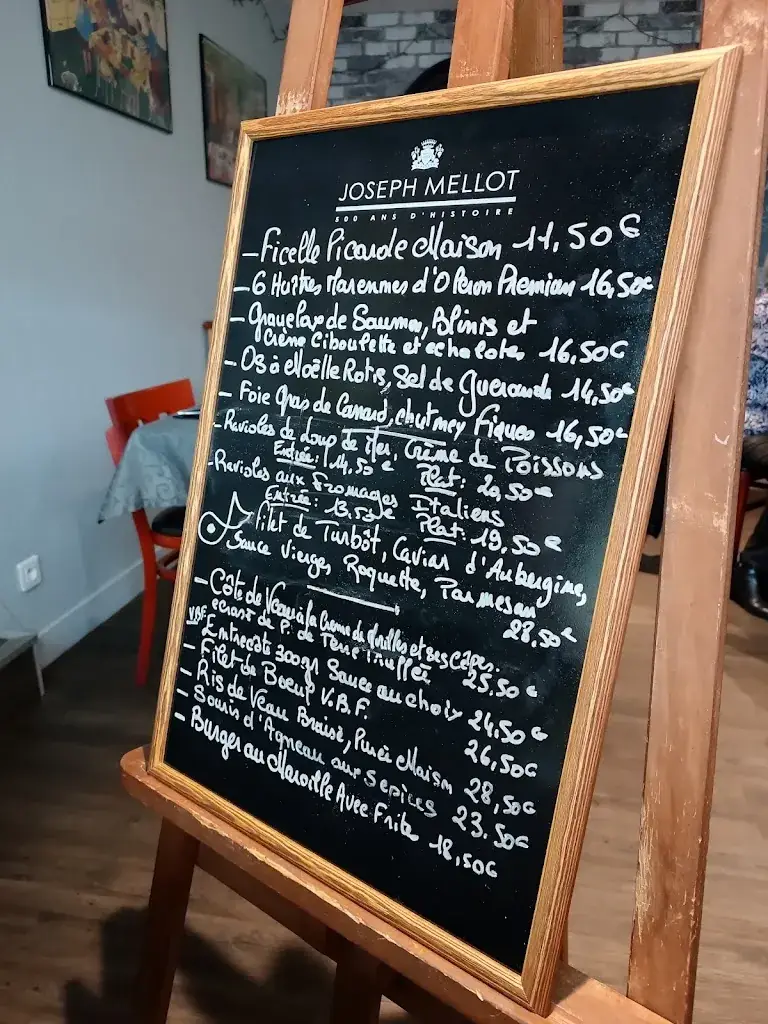 JOSEPH MELLOT
500 ANS D'HISTOIRE
- Ficelle Picarde Maison 11,50€
- 6 Huîtres Marennes d'Oléron Premium 16,50€
- Gravelax de Saumon, Blinis et
Crème Ciboulette et echalotes 16,50€
- Os à Moëlle Rotis, Sel de Guerande 14,50€
- Foie Gras de Canard, chutney Figues 16,50€
- Ravioles de Loup de Mer, Crème de Poissons
Entrée: 14,50€ Plat: 20,50€
- Ravioles aux Fromages Italiens
Entrée: 13,50€ Plat: 19,50€
Filet de Turbot, Caviar d'Aubergine,
Sauce Vierge, Roquette, Parmesan
28,50€
- Côte de Veau à la Crème de Morilles et ses Cèpes.
écrasé de P. de Terre Truffée 25,50€
VBF Entrecôte 300gr Sauce au choix 24,50€
- Filet de Boeuf V.B.F. 26,50€
- Ris de Veau Braisé, Purée Maison 28,50€
- Souris d'Agneau aux 5 epices 23,50€
- Burger au Maroille Avec Frite 18,50€